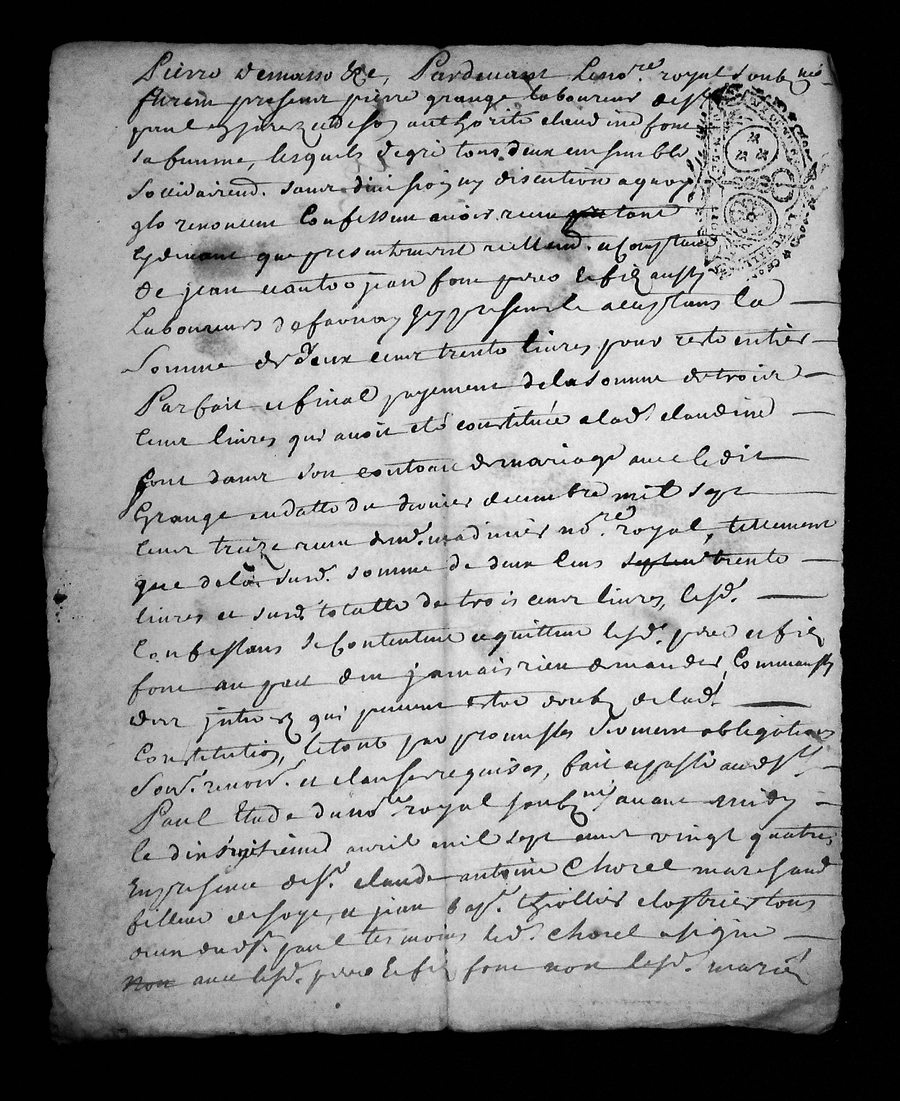 Pierre demasso &c, Pardevant le no.re royal soubné
furent present pierre grange laboureur de St
paul et de son authorité claudine font
sa femme, lesquels de gré tous deux ensemble
sollidairem.t sans division ny discution a quoy
ilz renoncent confessent avoir receu
cydevant que presentement reellem.t comptant
de jean et autre jean font pere et filz aussy
laboureurs de favnay icy presents acceptans la
Somme de deux cent trente livres pour reste entier
Parfait et final payement de la somme de trois
cent livres qui avoit eté constituée a lad. claudine
font dans son contract de mariage avec ledit
Grange en datte du dernier decembre mil sept
cent treize receu m.e no.re royal, tellement
que de la susd. somme de deux cens trente
livres et susd. totalle de trois cent livres, lesd.
confessans se contentent et quittent lesd. pere et filz
font au pact d'en jamais rien demander, comm'aussy
des interez qui peuvent estre doubz de lad.
constitution, le tout par promesses serment obligations
soum. renon. et clauses requises, fait et passé aud St
Paul Etude du no.re royal soubné avant midy
le dixhuitieme avril mil sept cent vingt quatre,
En presence de Sr. claude antoine Chorel marchand
filleur de soye, et jean bap. thiollier clostrier tous
deux dud St. paul tesmoins led. Chorel a signé
non avec lesd. pere et filz font non lesd. mariés